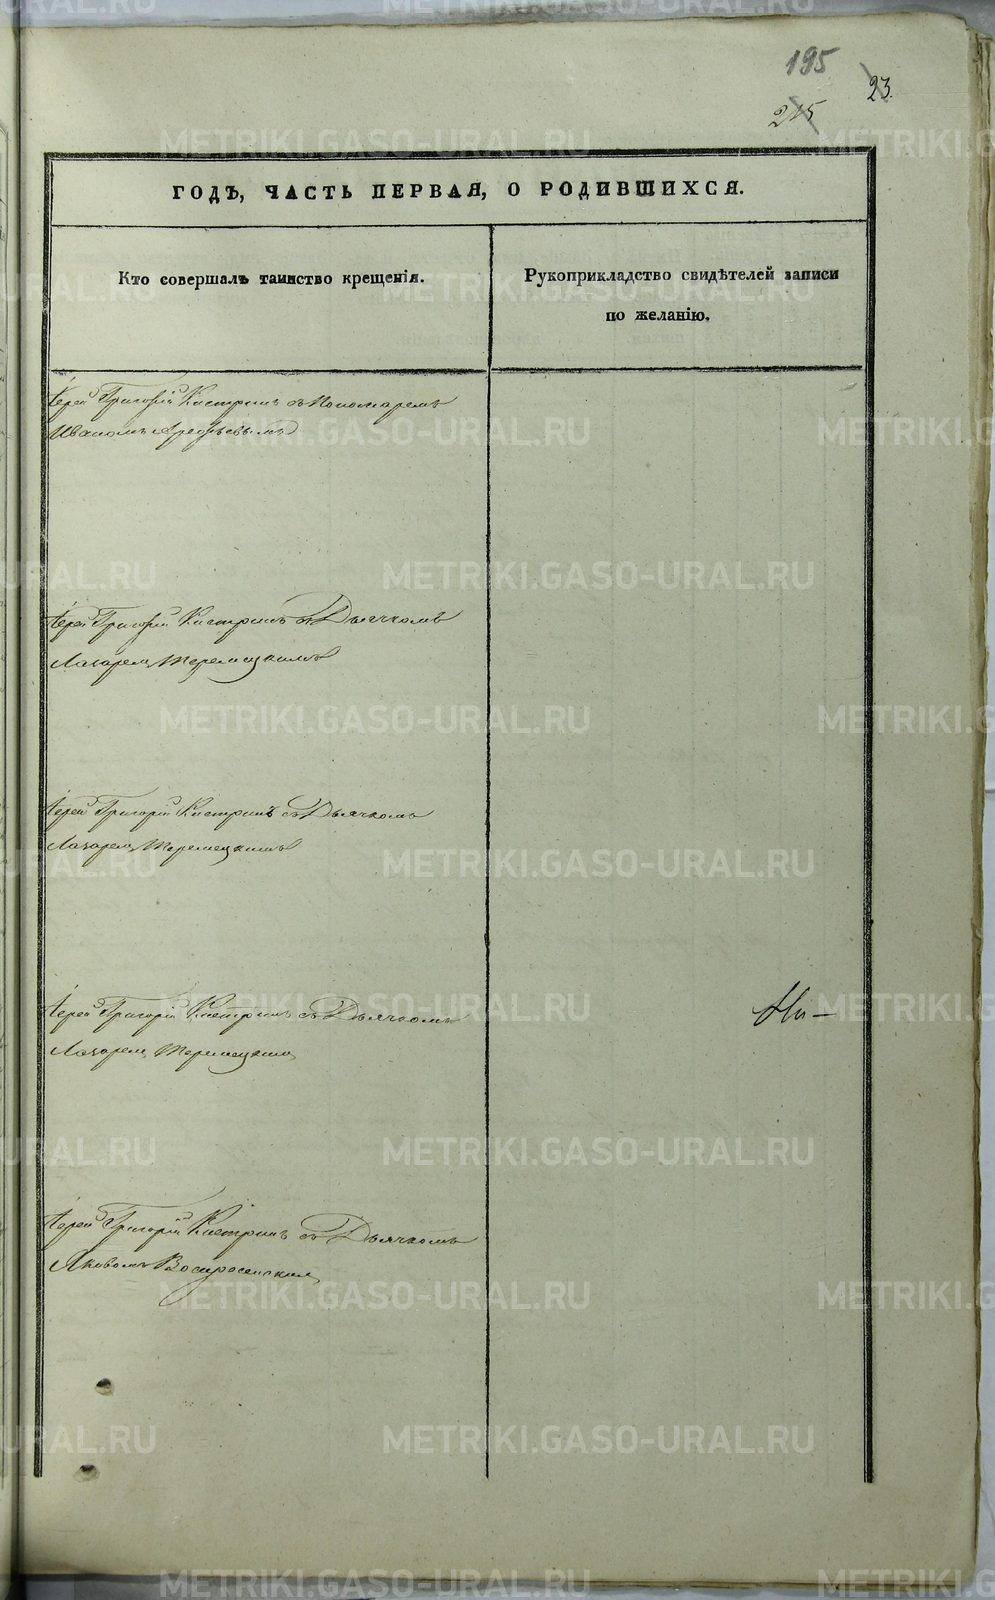 195
215
23.
ГОДЪ, ЧАСТЬ ПЕРВАЯ, О РОДИВШИХСЯ.
Кто совершалъ таинство крещенія.
Рукоприкладство свидѣтелей записи
по желанію.
Іерей Григорій Кастринъ съ Пономаремъ
Иваномъ Арефьевымъ
Іерей Григорій Кастринъ съ Дьячкомъ
Лазарем Теремецкимъ
Іерей Григорій Кастринъ съ Дьячкомъ
Лазарем Теремецкимъ
Іерей Григорій Кастринъ съ Дьячкомъ
Лазарем Теремецким
Іерей Григорій Кастринъ съ Дьячкомъ
Яковомъ
METRIKI.GASO-URAL.RU